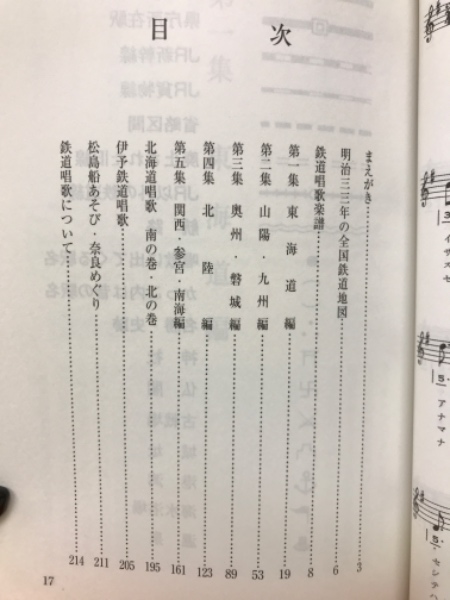 目次
まえがき……3
明治三三年の全国鉄道地図……6
鉄道唱歌楽譜……8
第一集 東海道編……19
第二集 山陽・九州編……53
第三集 奥州・磐城編……89
第四集 北陸編……123
第五集 関西・参宮・南海編……161
北海道唱歌 南の巻・北の巻……195
伊予鉄道唱歌……205
松島船あそび・奈良めぐり……211
鉄道唱歌について……214
17
イサヌセ
アナマナ